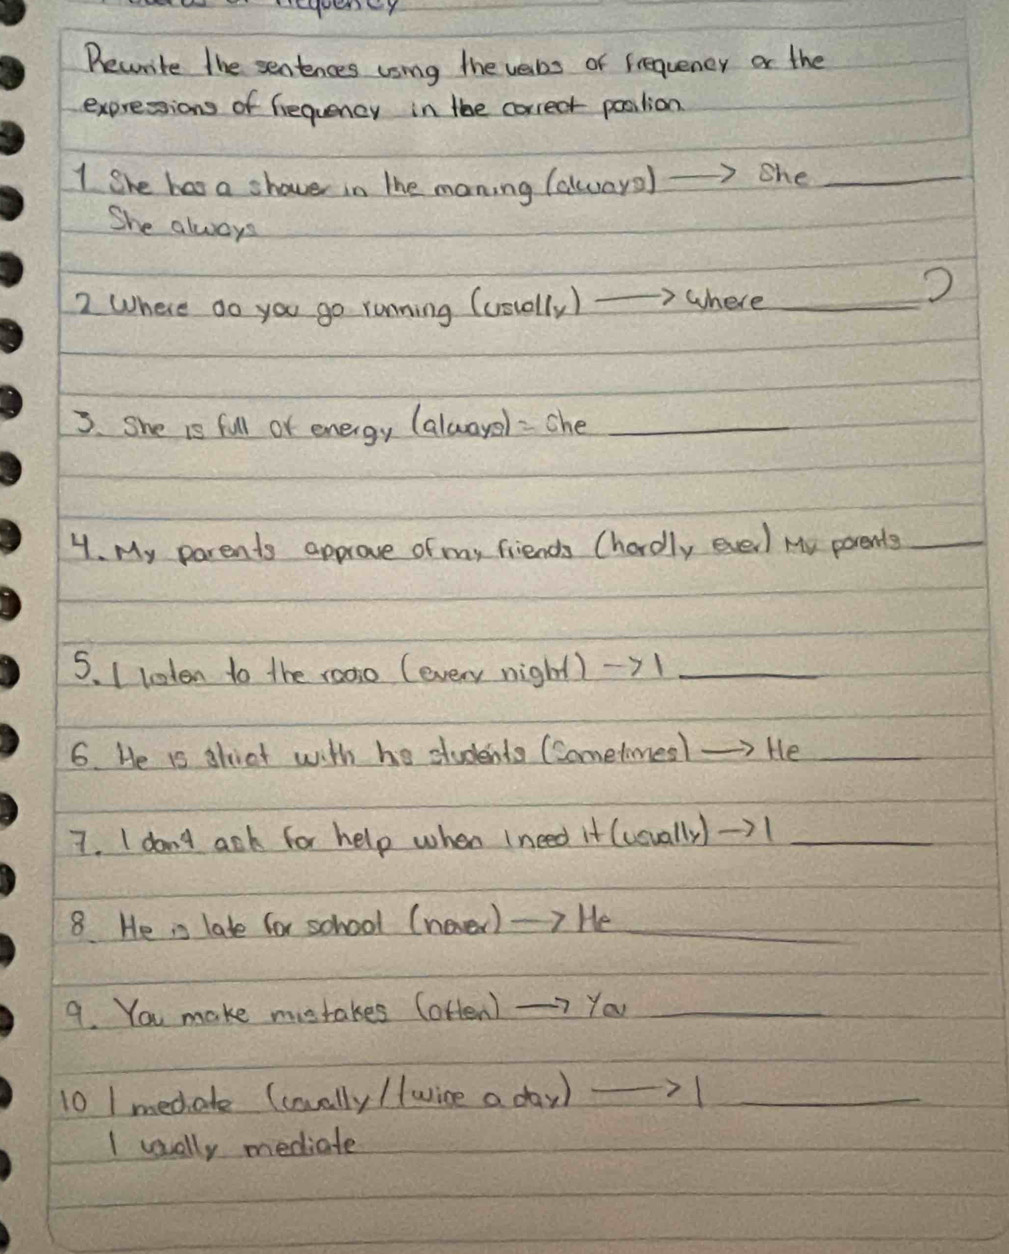 frequency
Rewrite the sentences using the verbs of frequency or the
expressions of frequency in the correct position
1 She has a shower in the morning (always) → She ______
She always
2 Where do you go running (usually) → Where ______?
3. She is full of energy (always) = She ______
4. My parents approve of my friends (hardly ever) My parents ______
5. I listen to the radio (every night) → I ______
6. He is strict with his students (Sometimes) → He ______
7. I don't ask for help when I need it (usually) → I ______
8. He is late for school (never) → He ______
9. You make mistakes (often) → You ______
10 I mediate (usually / twice a day) → I ______
I usually mediate